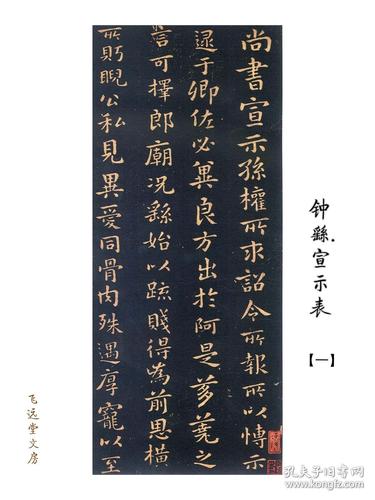 尚書宣示孫權所求詔令所報所以博示
逮于卿佐必冀良方出於阿是芻蕘之
言可擇郎廟況繇始以疏賤得為前恩橫
所盻睨公私見異愛同骨肉殊遇厚寵以至
钟繇宣示表
【一】
飞远堂文房
孔夫子旧书网